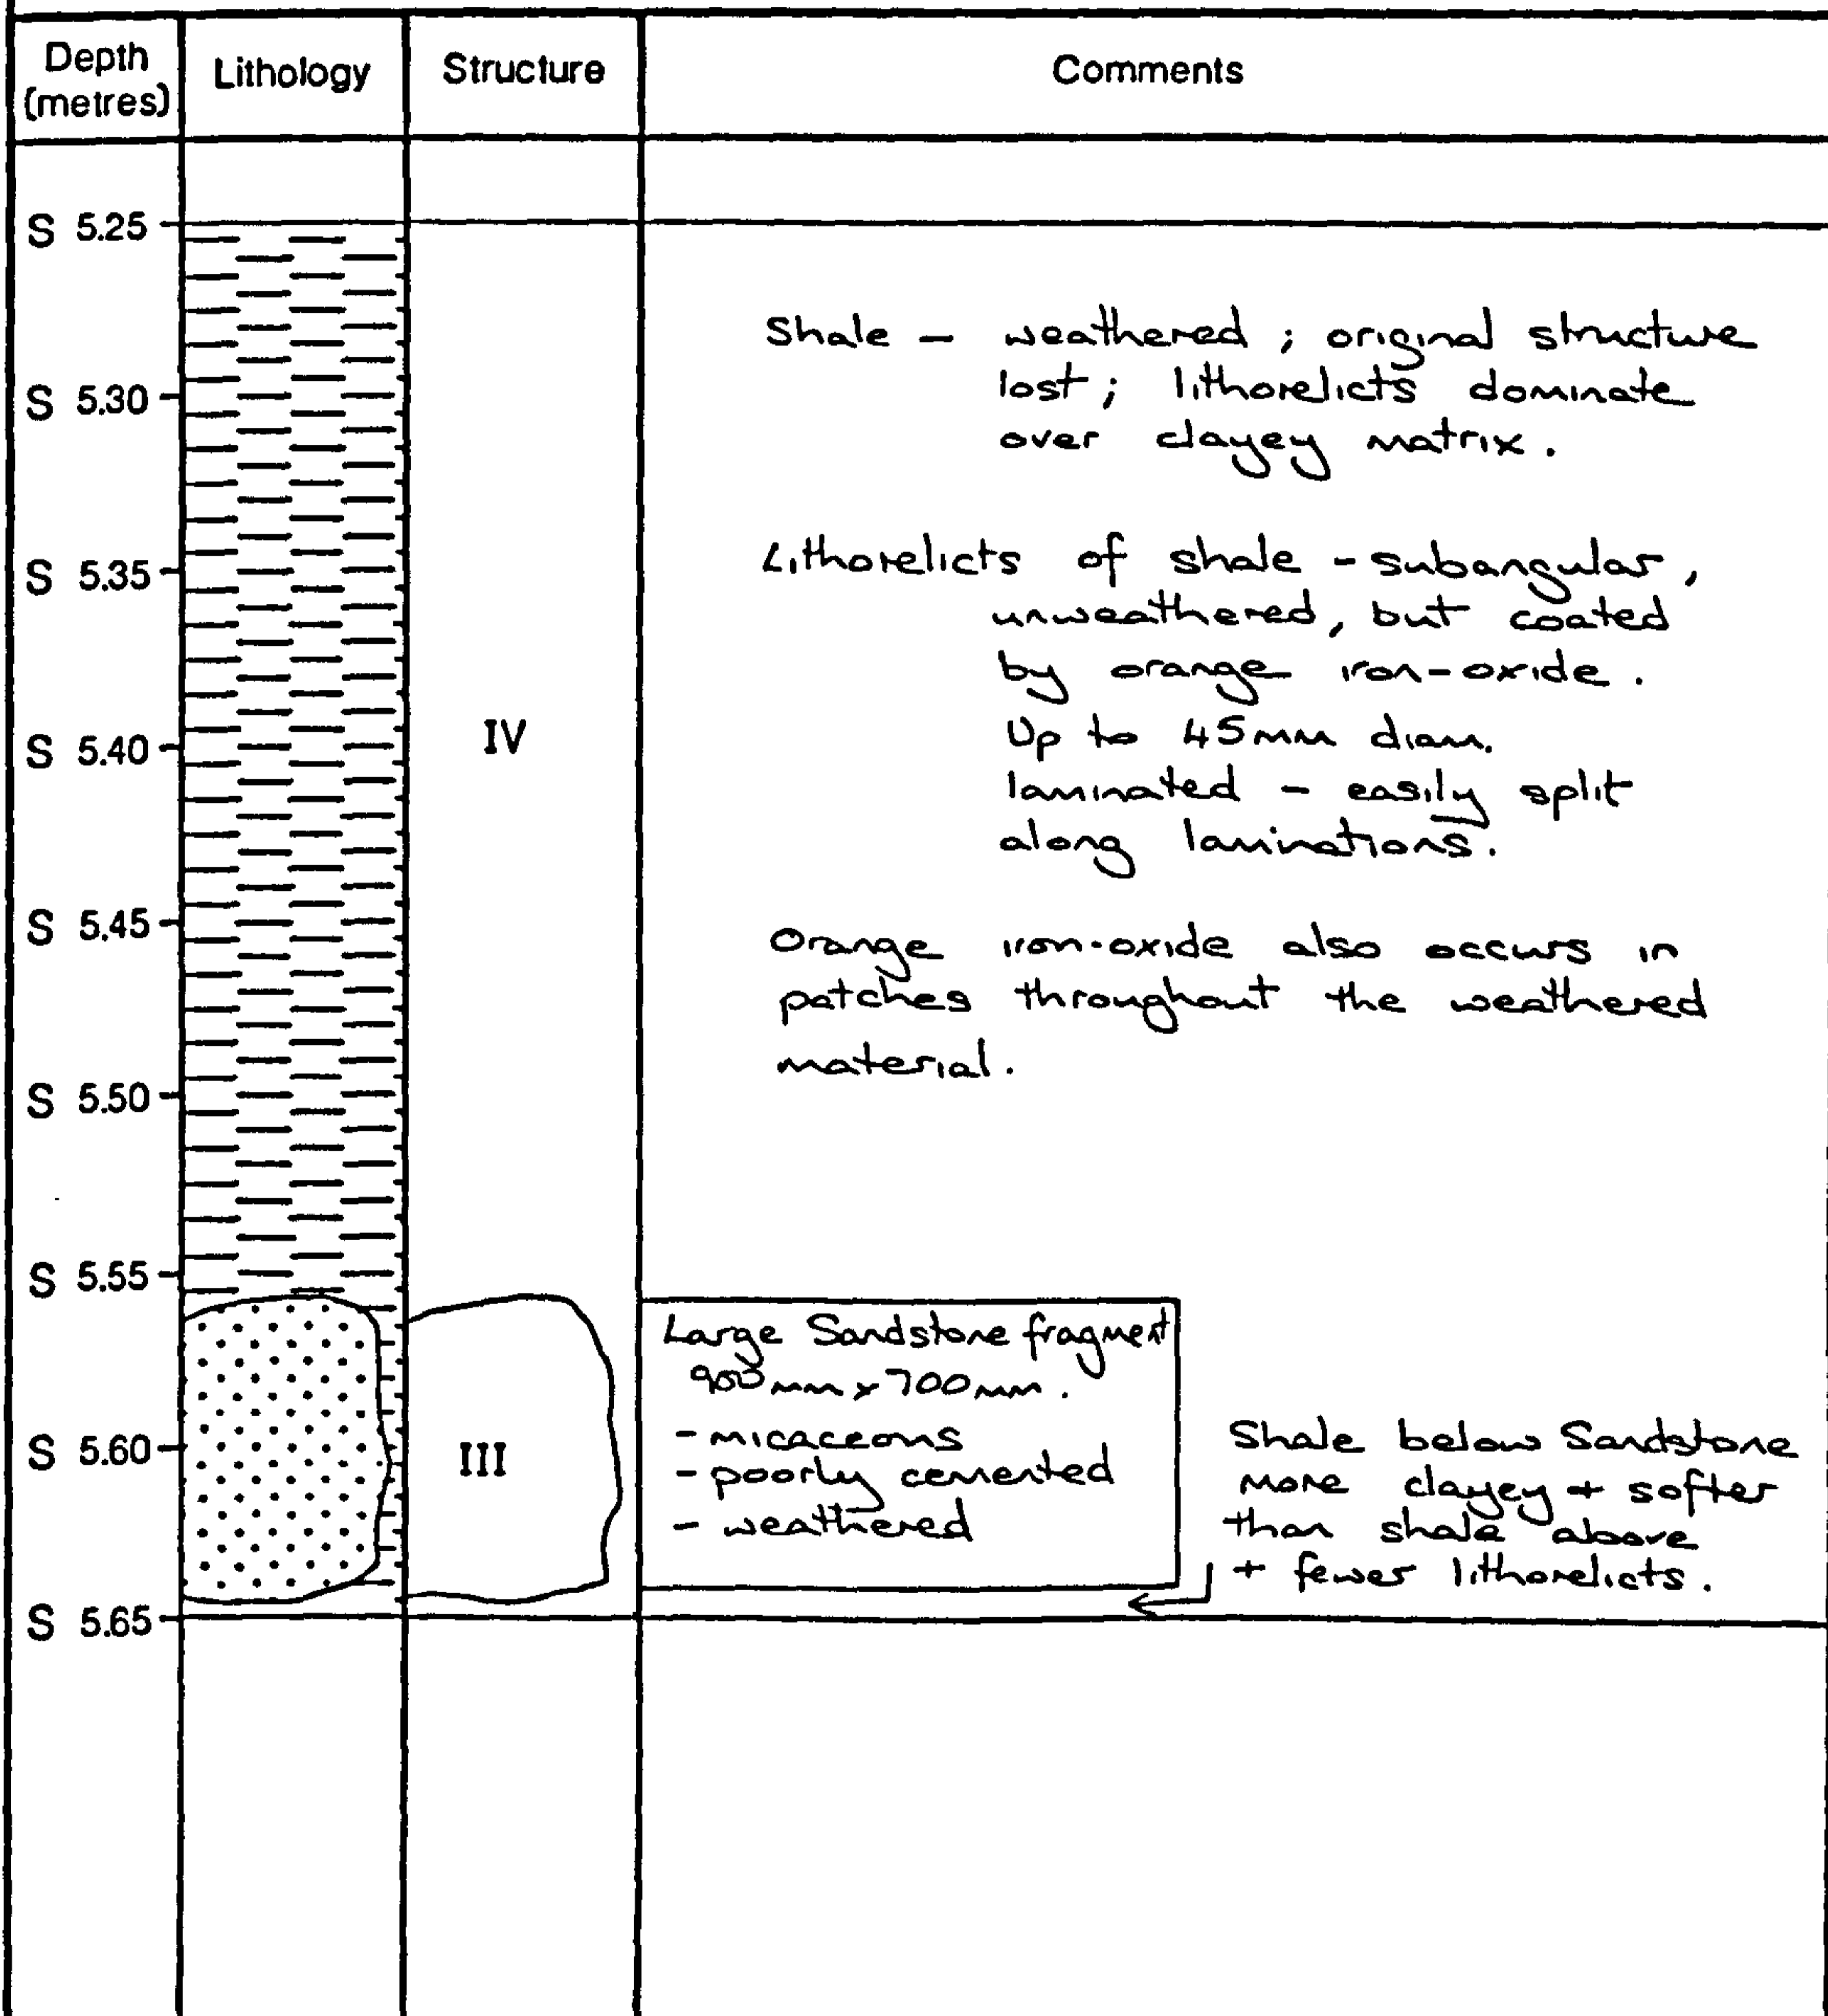 Depth
(metres)
Lithology
Structure
Comments
S 5.25
S 5.30
S 5.35
S 5.40
S 5.45
S 5.50
S 5.55
S 5.60
S 5.65
IV
III
Shale - weathered ; original structure
lost ; lithorelicts dominate
over clayey matrix .
Lithorelicts of shale - subangular ,
unweathered , but coated
by orange iron-oxide .
Up to 45mm diam.
laminated - easily split
along laminations .
Orange iron-oxide also occurs in
patches throughout the weathered
material .
Large Sandstone fragment
900mm x 700mm .
- micaceous
- poorly cemented
- weathered
Shale below Sandstone
more clayey + softer
than shale above
+ fewer lithorelicts .